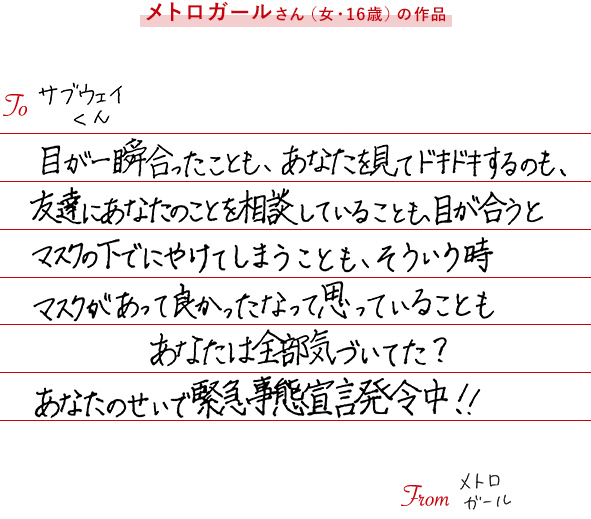 メトロガールさん（女・16歳）の作品
To サブウェイ
くん
目が一瞬合ったことも、あなたを見てドキドキするのも、
友達にあなたのことを相談していることも、目が合うと
マスクの下でにやけてしまうことも、そういう時
マスクがあって良かったなって思っていることも
あなたは全部気づいてた？
あなたのせいで緊急事態宣言発令中!!
From メトロ
ガール